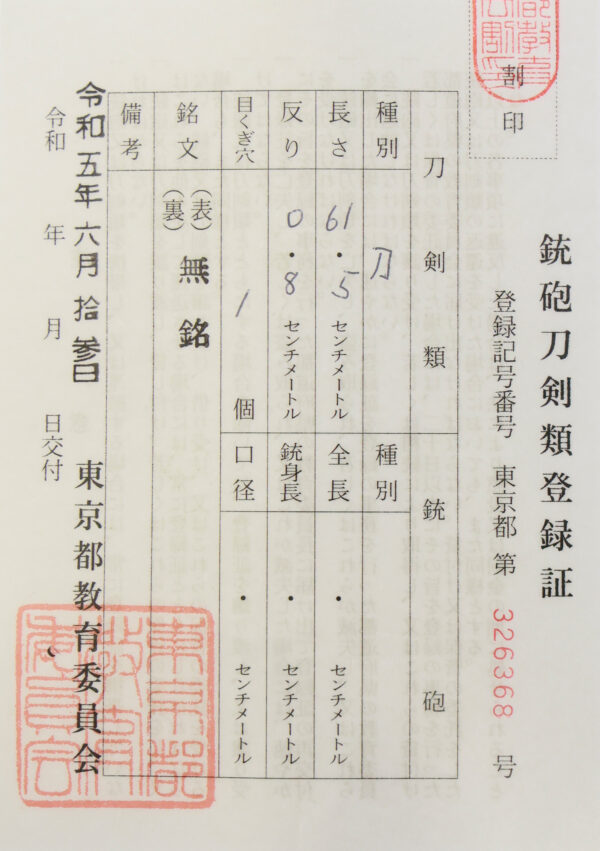 銃砲刀剣類登録証
登録記号番号 東京都 第 326368 号
割印
刀剣類 銃砲
種別 刀 種別
長さ 61.5センチメートル 全長 ・ センチメートル
反り 0.8センチメートル 銃身長 ・ センチメートル
目くぎ穴 1 個 口径 ・ センチメートル
銘文 (表) 無銘
(裏)
備考
令和五年六月拾参日
令和 年 月 日交付
東京都教育委員会
東京都
教育
委員会